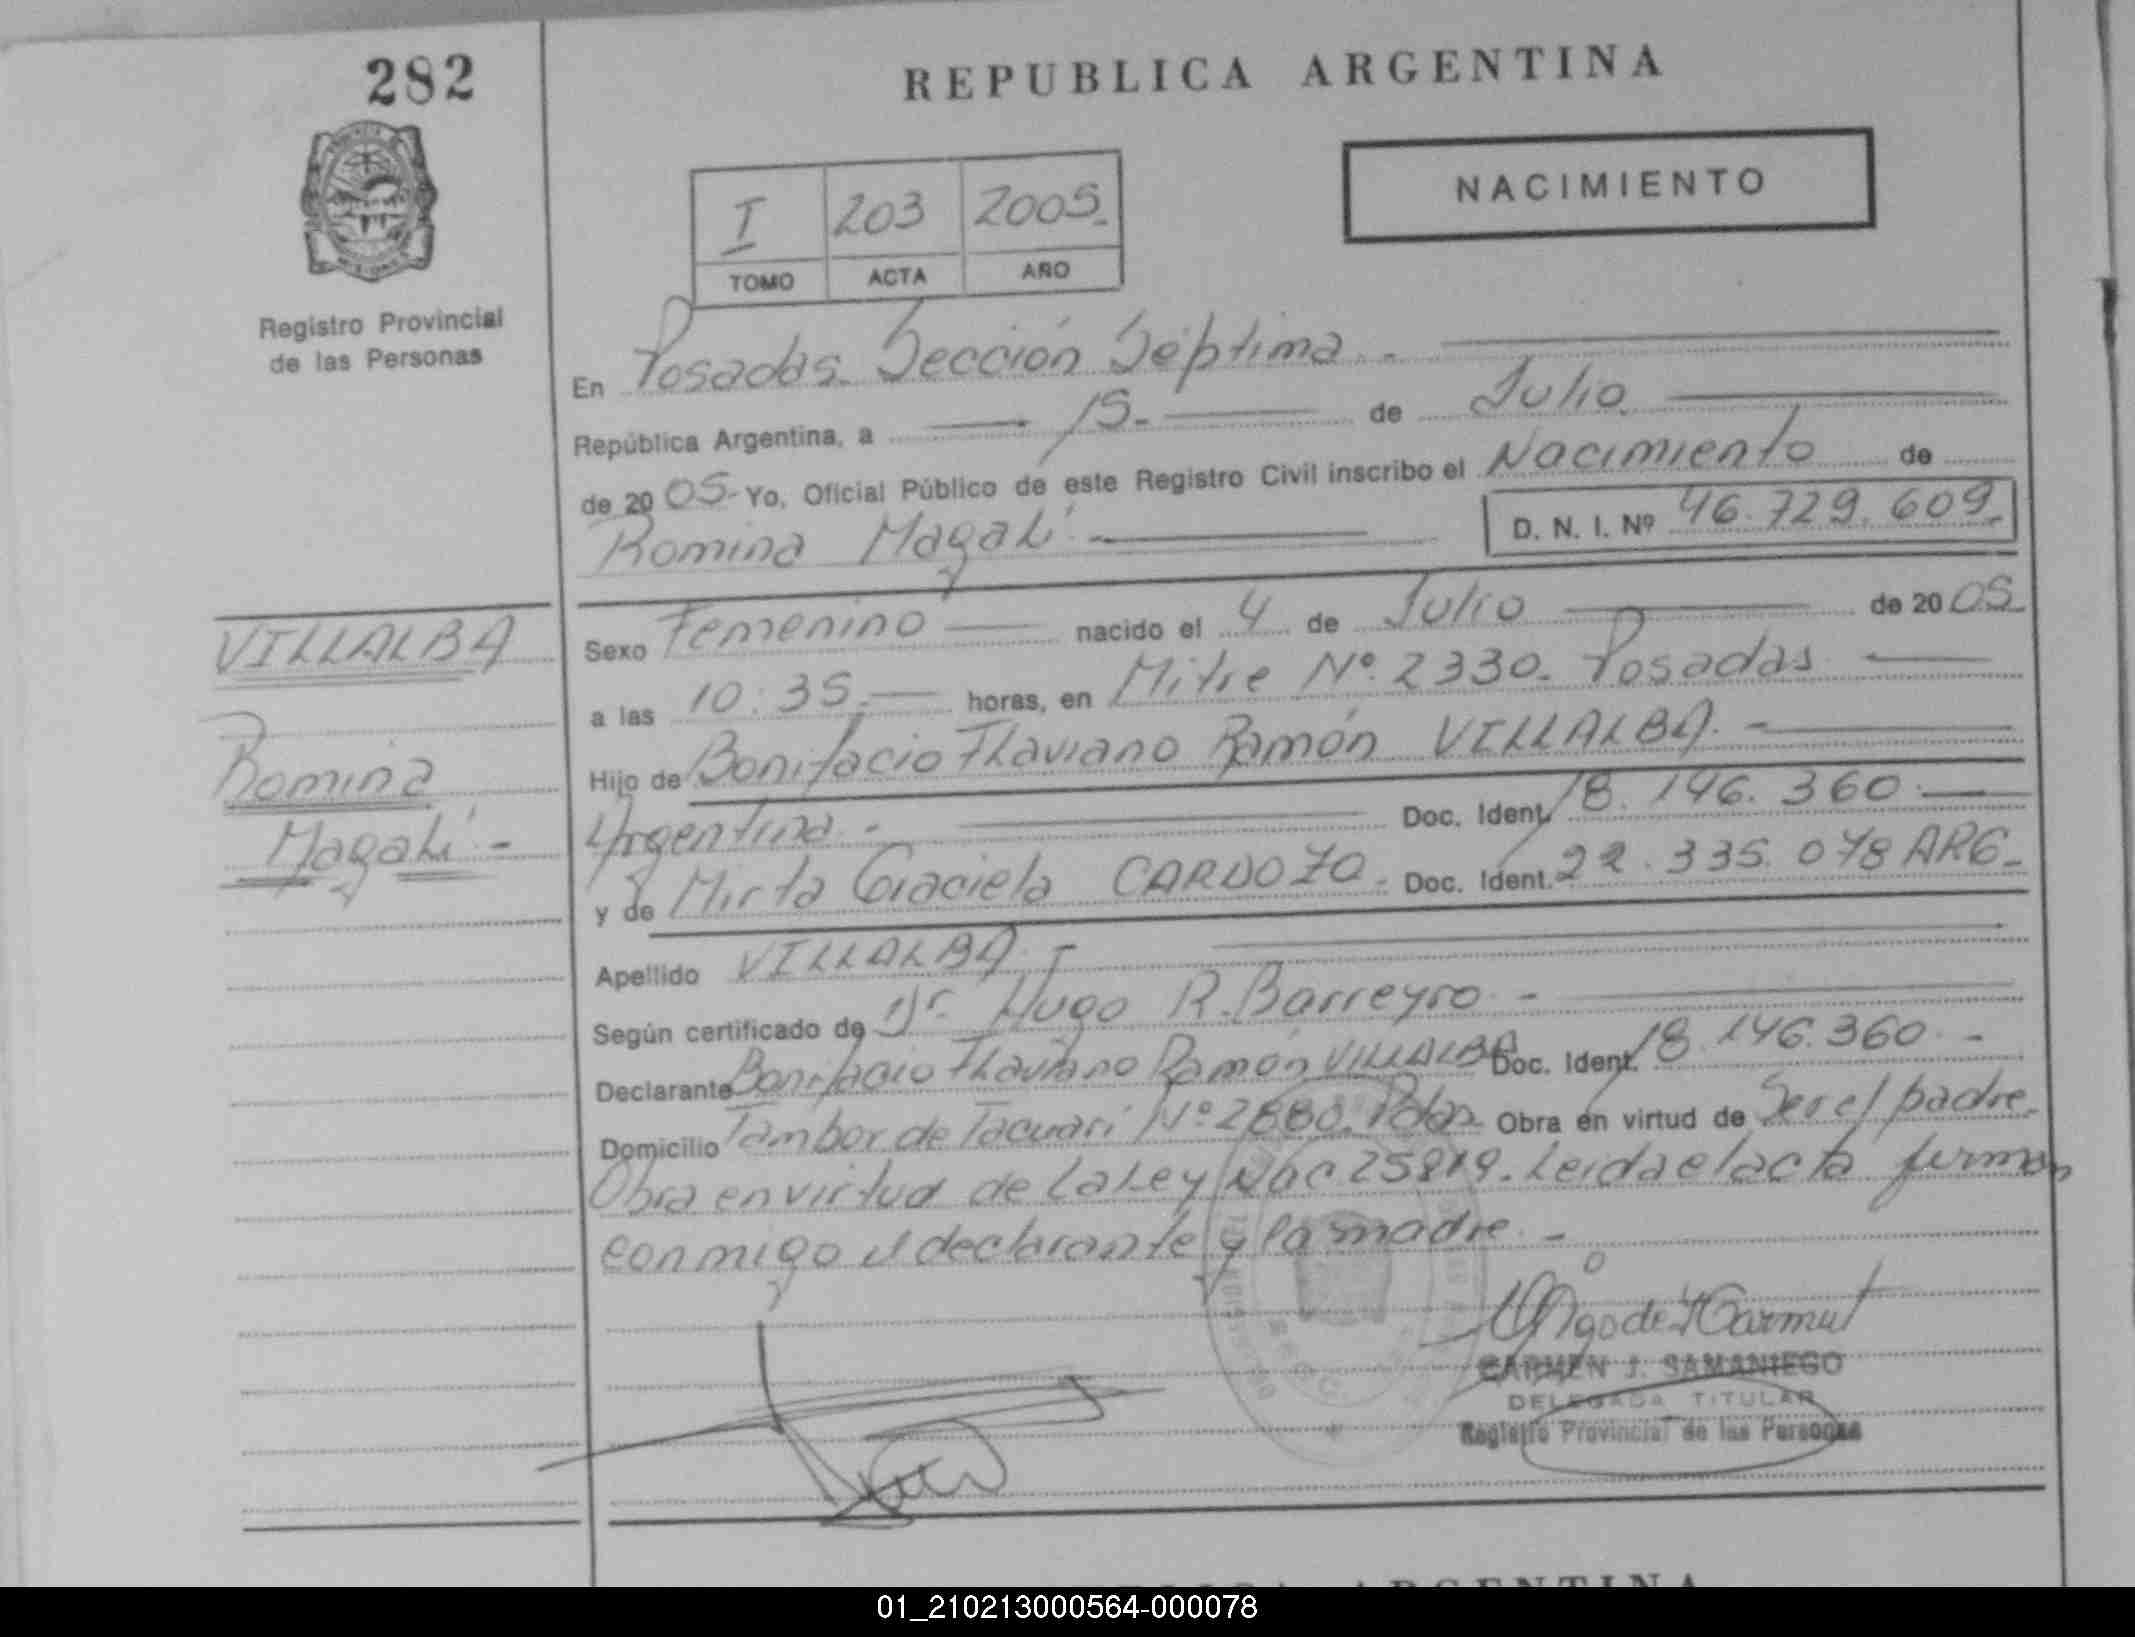 282
REPUBLICA ARGENTINA
NACIMIENTO
I 203 2005.
TOMO ACTA AÑO
Registro Provincial
de las Personas
En Posadas. Sección Séptima.-
República Argentina, a 15.- de Julio
de 2005- Yo, Oficial Público de este Registro Civil inscribo el Nacimiento de
Romina Magalí.- D. N. I. Nº 46.729.609.
VILLALBA
Romina
Magalí.-
Sexo Femenino nacido el 4 de Julio de 2005
a las 10:35.- horas, en Mitre Nº 2330. Posadas
Hijo de Bonifacio Flaviano Ramón VILLALBA.-
Argentina.- Doc. Ident. 18.146.360.-
y de Mirta Graciela CARDOZO. Doc. Ident. 22.335.078 ARG.
Apellido VILLALBA.-
Según certificado de Dr. Hugo R. Barreyro.-
Declarante Bonifacio Flaviano Ramón VILLALBA Doc. Ident. 18.146.360.-
Domicilio Tambor de Tacuarí Nº 2880. Pdas. Obra en virtud de Ser el padre.
Obra en virtud de La Ley Nac 25819. Leida el acta firman
conmigo el declarante y la madre.-
CARMEN J. SAMANIEGO
DELEGADA TITULAR
Registro Provincial de las Personas
01_210213000564-000078